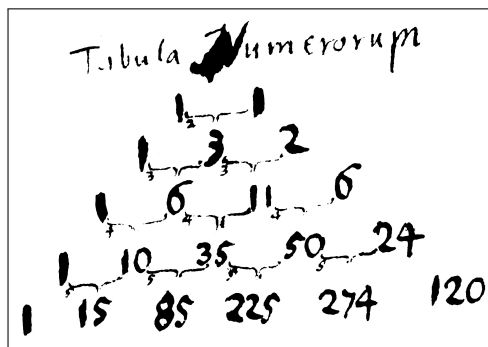 Tabula Numerorum
1 1
2
1 3 2
3 3
1 6 11 6
4 4 4
1 10 35 50 24
5 5
1 15 85 225 274 120